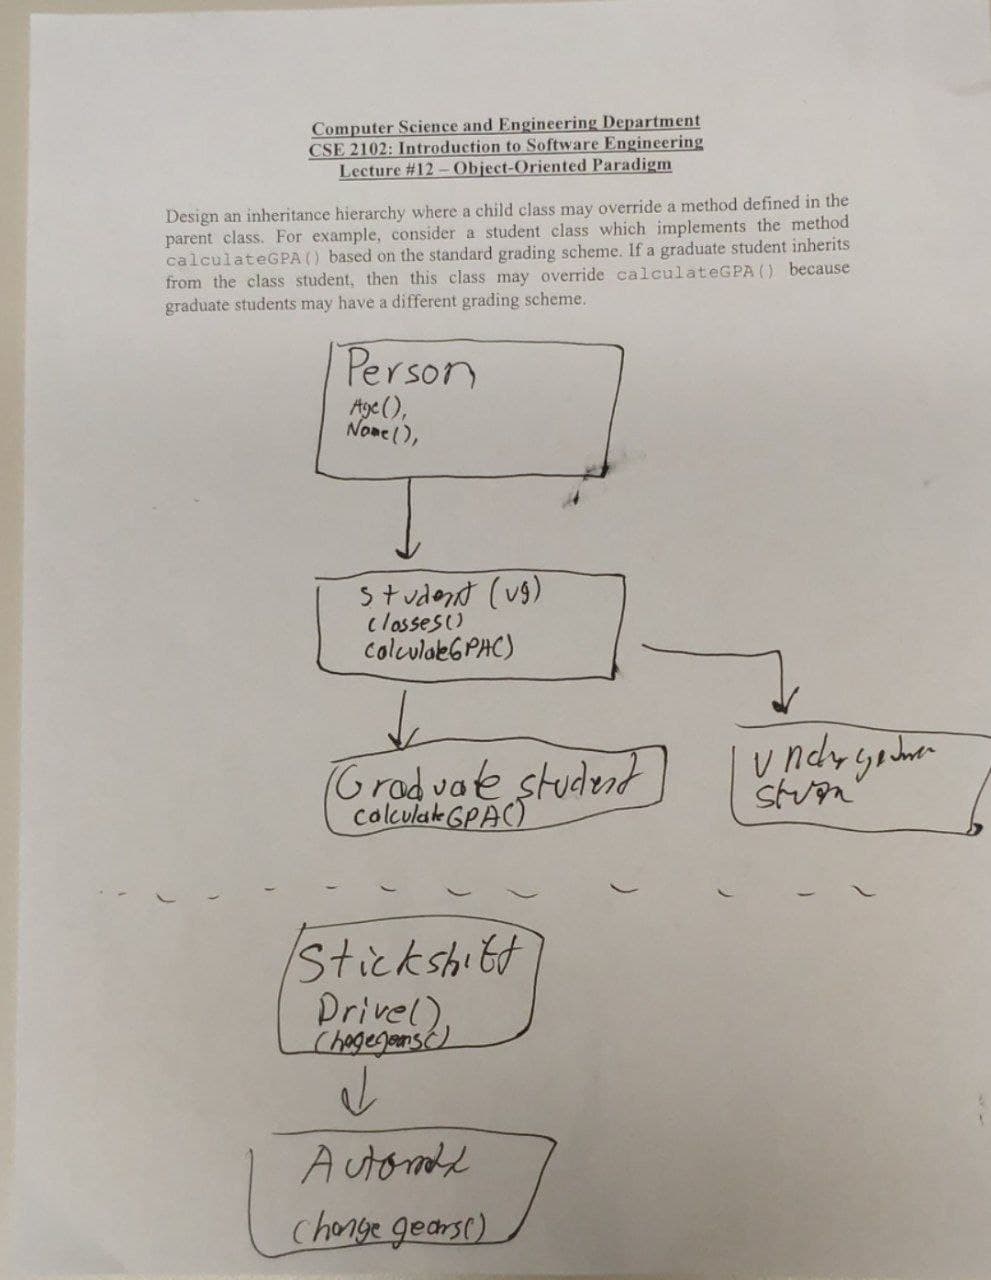 Computer Science and Engineering Department
CSE 2102: Introduction to Software Engineering
Lecture #12 – Object-Oriented Paradigm
Design an inheritance hierarchy where a child class may override a method defined in the
parent class. For example, consider a student class which implements the method
calculateGPA() based on the standard grading scheme. If a graduate student inherits
from the class student, then this class may override calculateGPA() because
graduate students may have a different grading scheme.
Person
Age(),
Name(),
Student (ug)
classes()
calculateGPA()
Graduate student
calculateGPA()
Stickshift
Drive(),
Change gears()